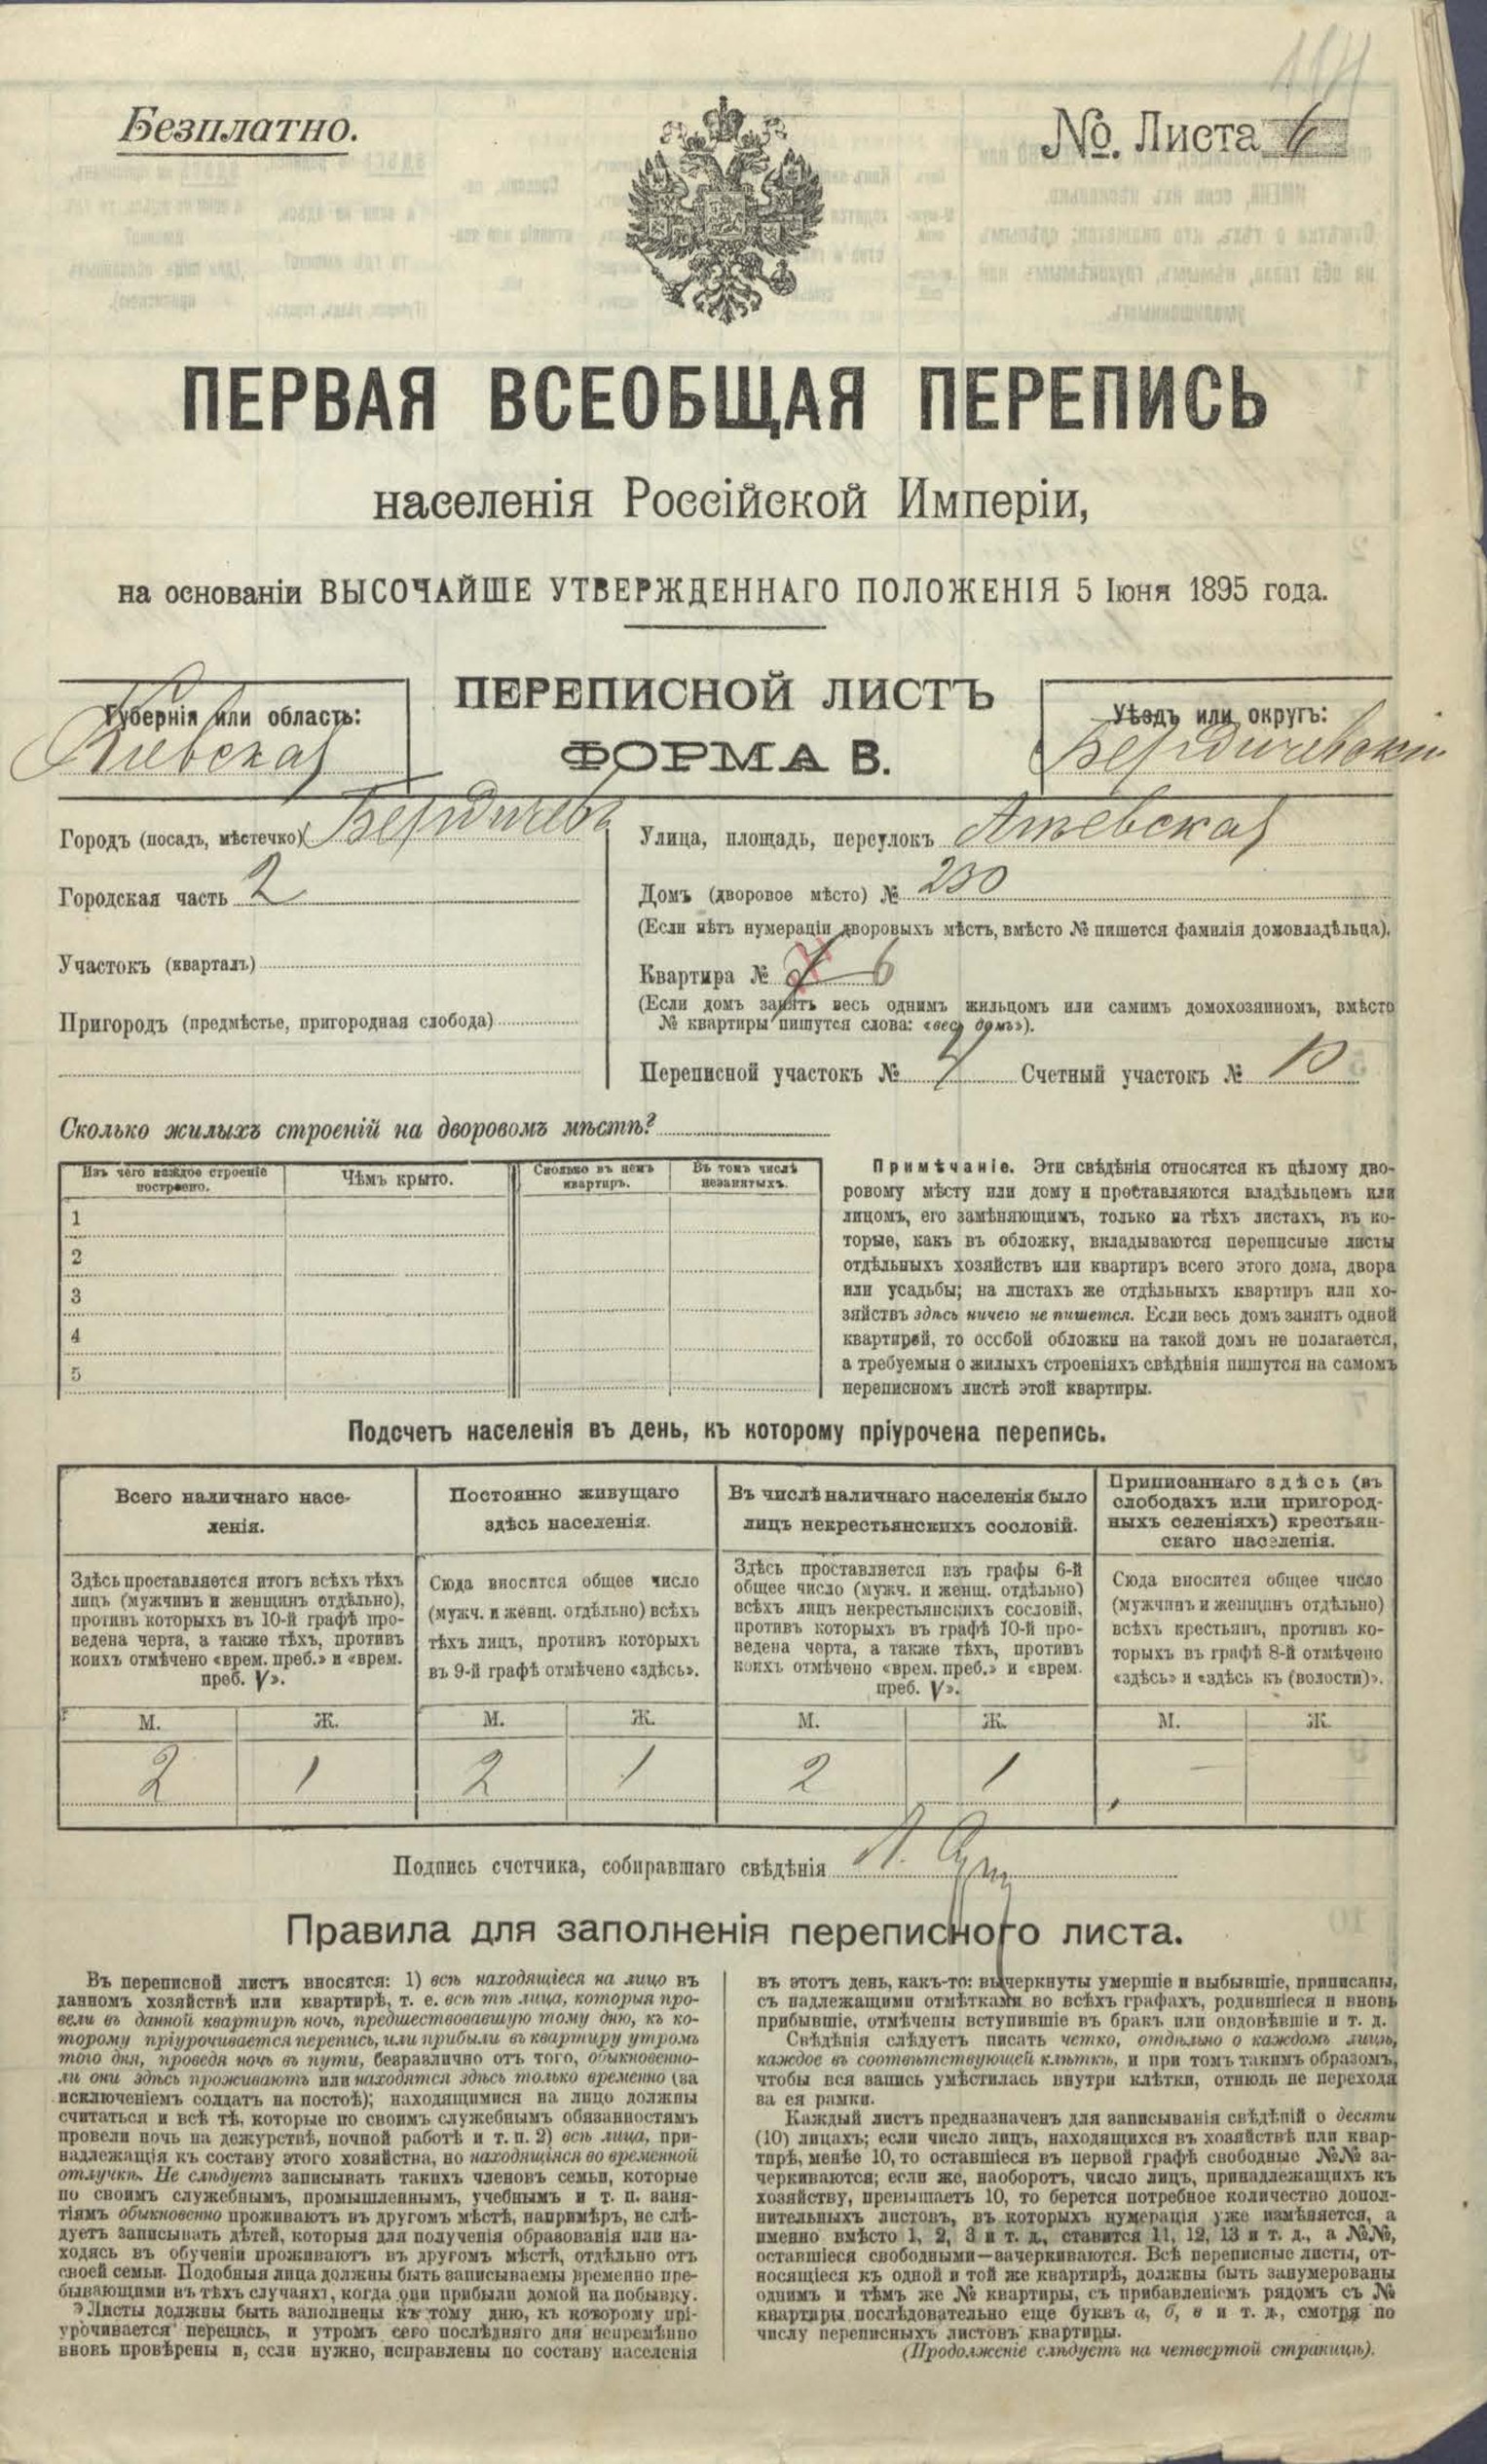 Безплатно.
№. Листа 6
ПЕРВАЯ ВСЕОБЩАЯ ПЕРЕПИСЬ
населенія Россійской Имперіи,
на основаніи ВЫСОЧАЙШЕ УТВЕРЖДЕННАГО ПОЛОЖЕНІЯ 5 Іюня 1895 года.
Губернія или область:
Кіевская
ПЕРЕПИСНОЙ ЛИСТЪ
ФОРМА В.
Уѣздъ или округъ:
Бердичевскій
Городъ (посадъ, мѣстечко) Бердичевъ
Городская часть 2
Участокъ (кварталъ)
Пригородъ (предмѣстье, пригородная слобода)
Улица, площадь, переулокъ
Домъ (дворовое мѣсто) № 230
(Если нѣтъ нумераціи дворовыхъ мѣстъ, вмѣсто № пишется фамилія домовладѣльца).
Квартира № 6
(Если домъ занятъ весь однимъ жильцомъ или самимъ домохозяиномъ, вмѣсто
№ квартиры пишутся слова: «весь домъ»).
Переписной участокъ № Счетный участокъ № 10
Сколько жилыхъ строеній на дворовомъ мѣстѣ?
Изъ чего каждое строеніе
построено.
Чѣмъ крыто.
Сколько въ немъ
квартиръ.
Въ томъ числѣ
незанятыхъ.
1
2
3
4
5
Примѣчаніе. Эти свѣдѣнія относятся къ цѣлому дво-
ровому мѣсту или дому и проставляются владѣльцемъ или
лицомъ, его замѣняющимъ, только на тѣхъ листахъ, въ ко-
торые, какъ въ обложку, вкладываются переписные листы
отдѣльныхъ хозяйствъ или квартиръ всего этого дома, двора
или усадьбы; на листахъ же отдѣльныхъ квартиръ или хо-
зяйствъ здѣсь ничего не пишется. Если весь домъ занятъ одной
квартирей, то особой обложки на такой домъ не полагается,
а требуемыя о жилыхъ строеніяхъ свѣдѣнія пишутся на самомъ
переписномъ листѣ этой квартиры.
Подсчетъ населенія въ день, къ которому пріурочена перепись.
Всего наличнаго насе-
ленія.
Здѣсь проставляется итогъ всѣхъ тѣхъ
лицъ (мужчинъ и женщинъ отдѣльно),
противъ которыхъ въ 10-й графѣ про-
ведена черта, а также тѣхъ, противъ
коихъ отмѣчено «врем. преб.» и «врем.
преб. V».
Постоянно живущаго
здѣсь населенія.
Сюда вносится общее число
(мужч. и женщ. отдѣльно) всѣхъ
тѣхъ лицъ, противъ которыхъ
въ 9-й графѣ отмѣчено «здѣсь».
Въ числѣ наличнаго населенія было
лицъ некрестьянскихъ сословій.
Здѣсь проставляется изъ графы 6-й
общее число (мужч. и женщ. отдѣльно)
всѣхъ лицъ некрестьянскихъ сословій,
противъ которыхъ въ графѣ 10-й про-
ведена черта, а также тѣхъ, противъ
коихъ отмѣчено «врем. преб.» и «врем.
преб. V».
Приписаннаго здѣсь (въ
слободахъ или пригород-
ныхъ селеніяхъ) крестьян-
скаго населенія.
Сюда вносится общее число
(мужчинъ и женщинъ отдѣльно)
всѣхъ крестьянъ, противъ ко-
торыхъ въ графѣ 8-й отмѣчено
«здѣсь» и «здѣсь къ (волости)».
М. Ж. М. Ж. М. Ж. М. Ж.
2 1 2 1 2 1 — —
Подпись счетчика, собиравшаго свѣдѣнія
Правила для заполненія переписного листа.
Въ переписной листъ вносятся: 1) всѣ находящіеся на лицо въ
данномъ хозяйствѣ или квартирѣ, т. е. всѣ тѣ лица, которыя про-
вели въ данной квартирѣ ночь, предшествовавшую тому дню, къ ко-
торому пріурочивается перепись, или прибыли въ квартиру утромъ
того дня, проведя ночь въ пути, безразлично отъ того, обыкновенно-
ли они здѣсь проживаютъ или находятся здѣсь только временно (за
исключеніемъ солдатъ на постоѣ); находящимися на лицо должны
считаться и всѣ тѣ, которые по своимъ служебнымъ обязанностямъ
провели ночь на дежурствѣ, ночной работѣ и т. п. 2) всѣ лица, при-
надлежащія къ составу этого хозяйства, но находящіяся во временной
отлучкѣ. Не слѣдуетъ записывать такихъ членовъ семьи, которые
по своимъ служебнымъ, промышленнымъ, учебнымъ и т. п. заня-
тіямъ обыкновенно проживаютъ въ другомъ мѣстѣ, напримѣръ, не слѣ-
дуетъ записывать дѣтей, которыя для полученія образованія или на-
ходясь въ обученіи проживаютъ въ другомъ мѣстѣ, отдѣльно отъ
своей семьи. Подобныя лица должны быть записываемы временно пре-
бывающими въ тѣхъ случаяхъ, когда они прибыли домой на побывку.
Листы должны быть заполнены къ тому дню, къ которому прі-
урочивается перепись, и утромъ сего послѣдняго дня непремѣнно
вновь провѣрены и, если нужно, исправлены по составу населенія
въ этотъ день, какъ-то: вычеркнуты умершіе и выбывшіе, приписаны,
съ надлежащими отмѣтками во всѣхъ графахъ, родившіеся и вновь
прибывшіе, отмѣчены вступившіе въ бракъ или овдовѣвшіе и т. д.
Свѣдѣнія слѣдуетъ писать четко, отдѣльно о каждомъ лицѣ,
каждое въ соотвѣтствующей клѣткѣ, и при томъ такимъ образомъ,
чтобы вся запись умѣстилась внутри клѣтки, отнюдь не переходя
за ея рамки.
Каждый листъ предназначенъ для записыванія свѣдѣній о десяти
(10) лицахъ; если число лицъ, находящихся въ хозяйствѣ или квар-
тирѣ, менѣе 10, то оставшіеся въ первой графѣ свободные №№ за-
черкиваются; если же, наоборотъ, число лицъ, принадлежащихъ къ
хозяйству, превышаетъ 10, то берется потребное количество допол-
нительныхъ листовъ, въ которыхъ нумерація уже измѣняется, а
именно вмѣсто 1, 2, 3 и т. д., ставится 11, 12, 13 и т. д., а №№,
оставшіеся свободными—зачеркиваются. Всѣ переписные листы, от-
носящіеся къ одной и той же квартирѣ, должны быть занумерованы
однимъ и тѣмъ же № квартиры, съ прибавленіемъ рядомъ съ №
квартиры послѣдовательно еще буквъ а, б, в и т. д., смотря по
числу переписныхъ листовъ квартиры.
(Продолженіе слѣдуетъ на четвертой страницѣ).